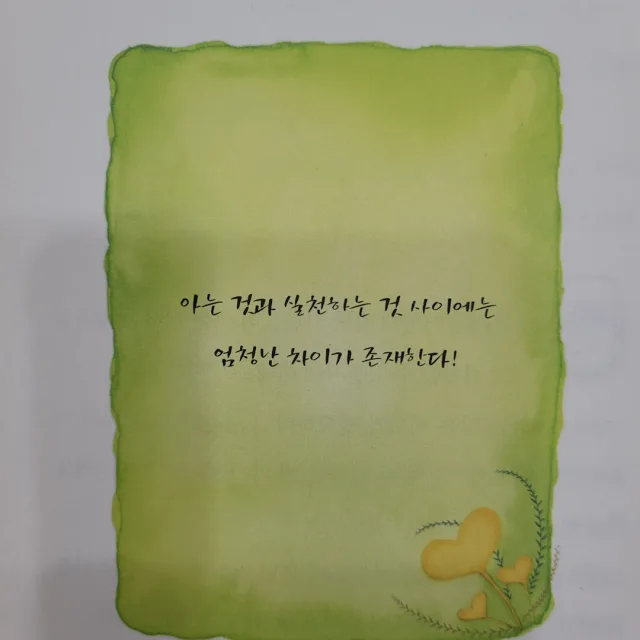 아는 것과 실천하는 것 사이에는
엄청난 차이가 존재한다!